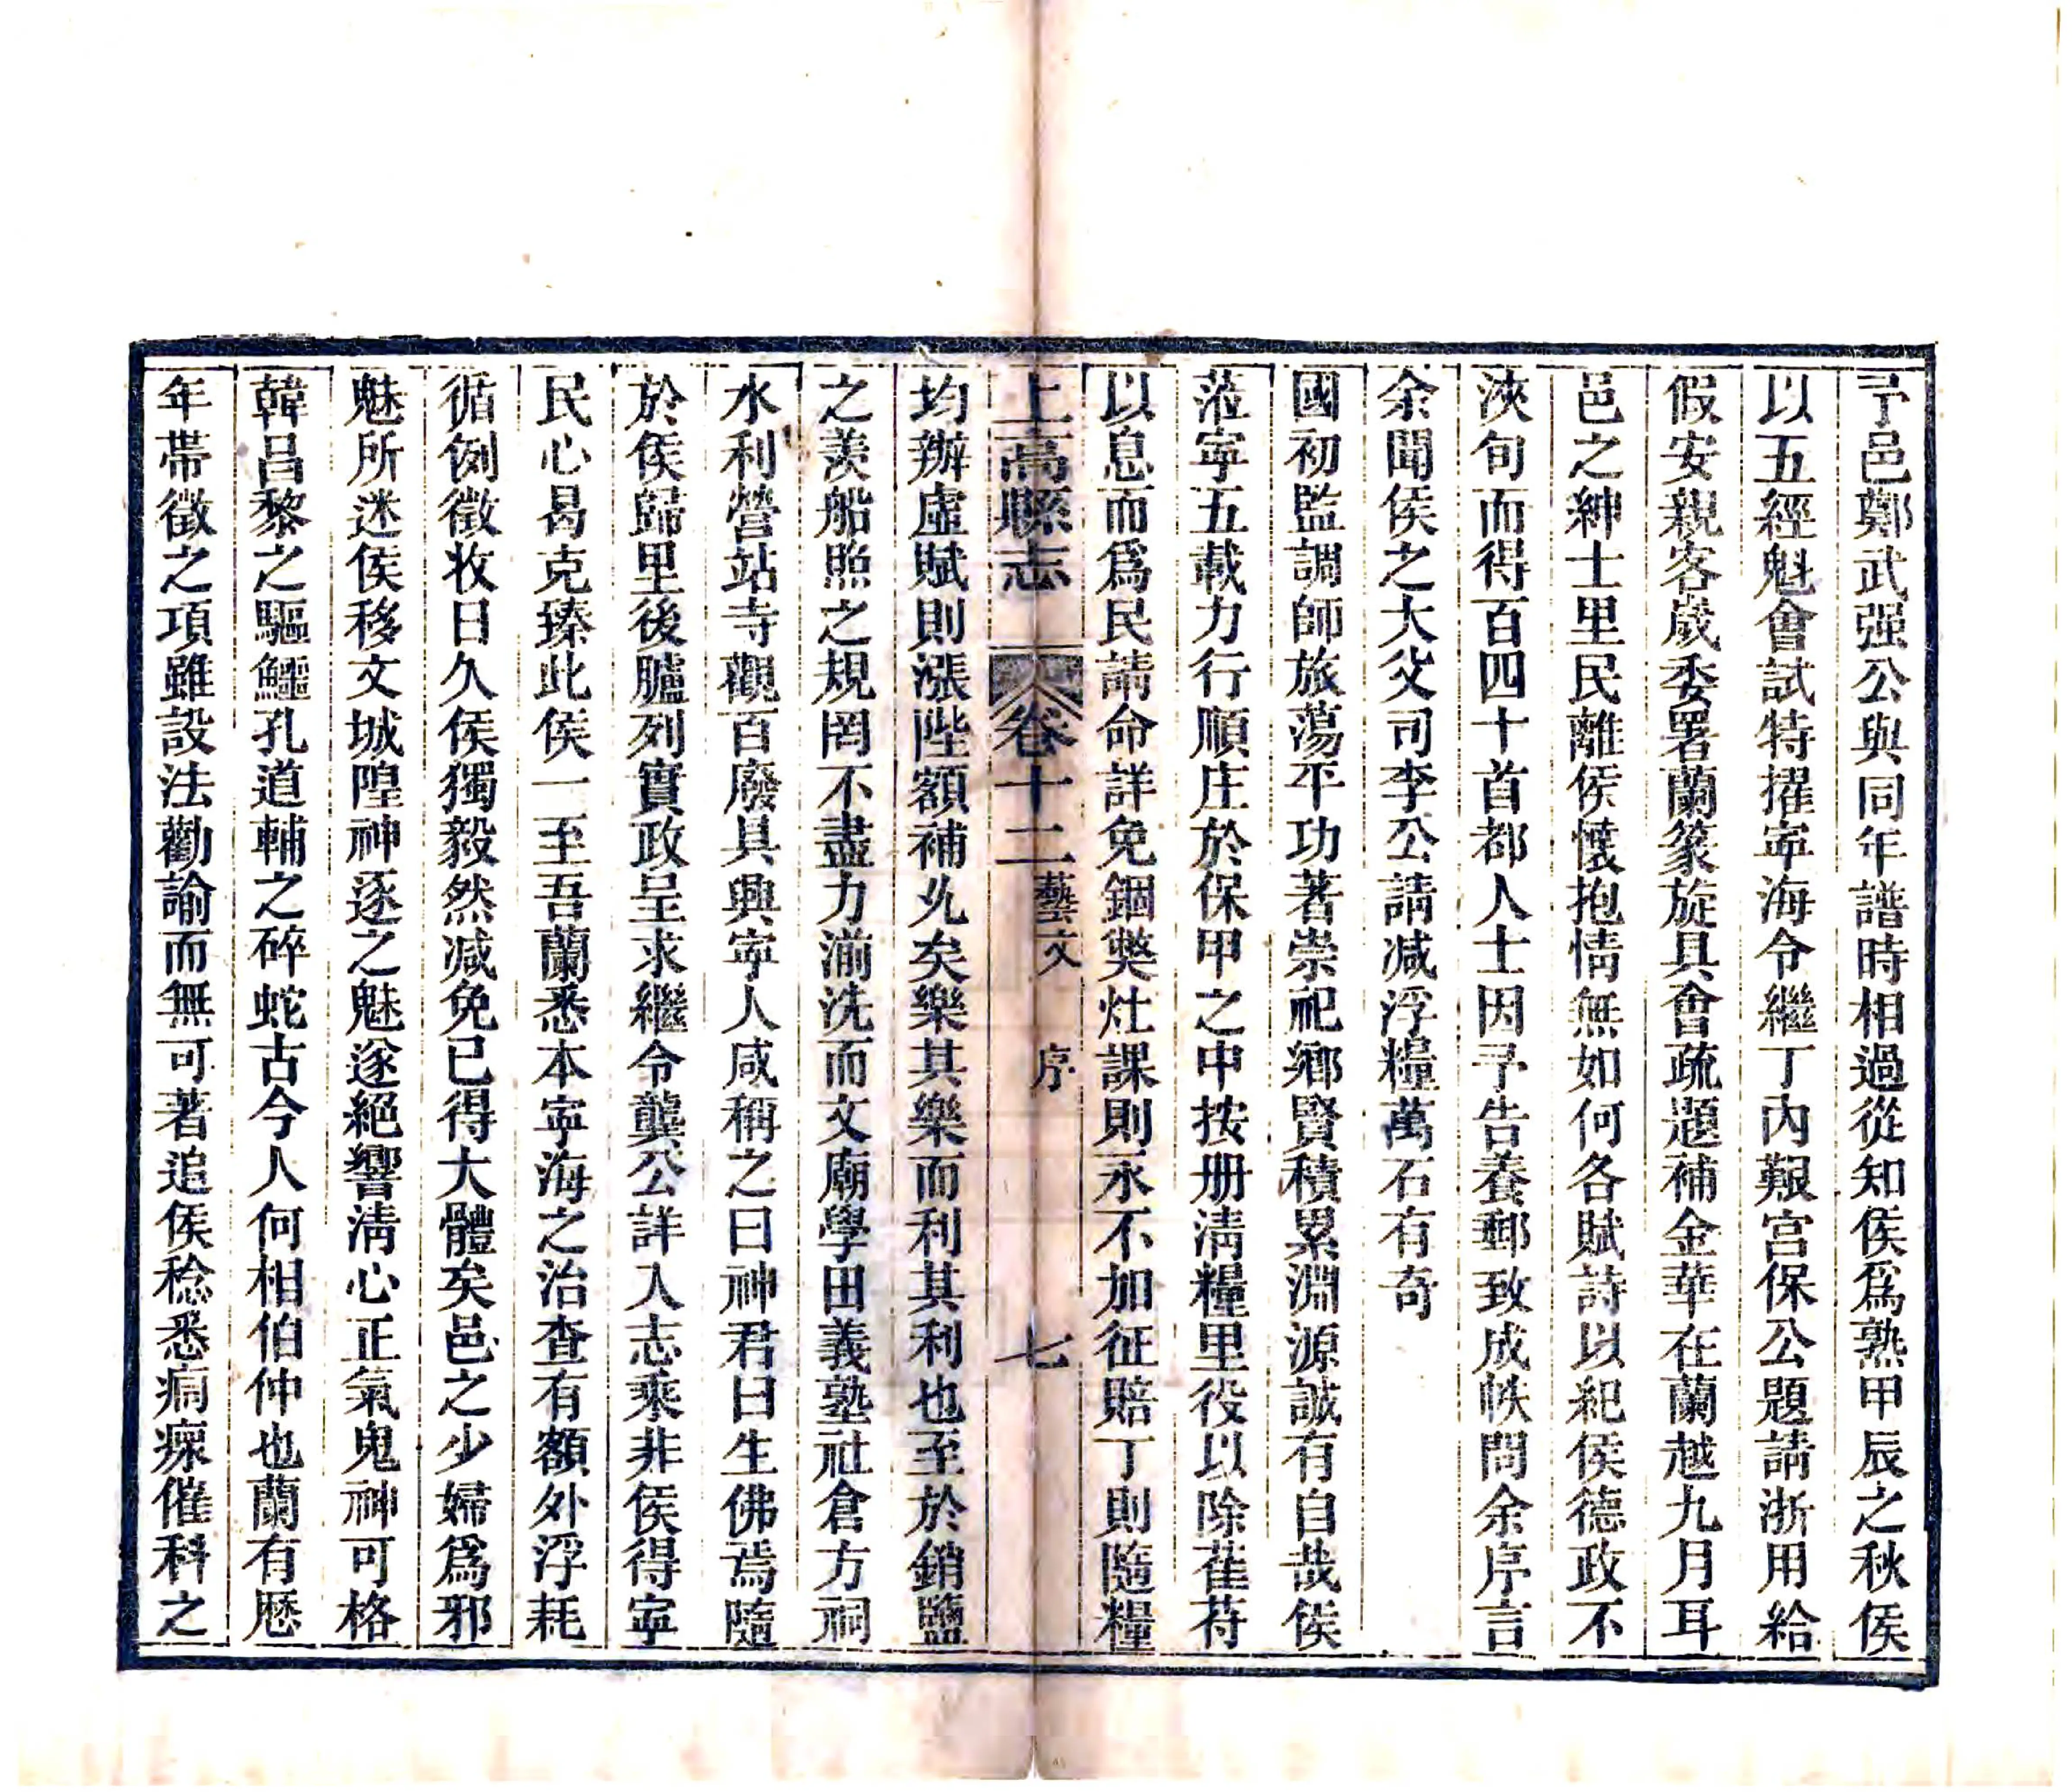 予邑鄭武强公與同年譜時相過從知侯爲熟甲辰之秋侯
以五經魁會試特擢寜海令繼丁內艱宫保公題請浙用給
假安親客歲委署蘭篆旋具會疏題補金華在蘭越九月耳
邑之紳士里民離侯懷抱情無如何各賦詩以紀侯德政不
浹旬而得百四十首都人士因予告養郵致成帙問余序言
余聞侯之大父司李公請减浮糧萬石有奇
國初監調師旅蕩平功著崇祀鄉賢積累淵源誠有自哉侯
蒞寜五載力行順庄於保甲之中按册淸糧里役以除萑苻
以息而爲民請命詳免錮獘灶課則永不加征賠丁則隨糧
上高縣志 卷十二 藝文 序 七
均辦虛賦則漲陞額補乆矣樂其樂而利其利也至於銷鹽
之羨船照之規罔不盡力湔洗而文廟學田義塾社倉方祠
水利營站寺觀百廢具興寜人咸稱之曰神君曰生佛焉隨
於侯歸里後臚列實政呈求繼令龔公詳人志乘非侯得寜
民心曷克臻此侯一至吾蘭悉本寜海之治查有額外浮耗
循例徵收日久侯獨毅然减免已得大體矣邑之少婦爲邪
魅所迷侯移文城隍神逐之魅遂絕響淸心正氣鬼神可格
韓昌黎之驅鱷孔道輔之碎蛇古今人何相伯仲也蘭有厯
年帶徵之項雖設法勸諭而無可著追侯稔悉痌瘝催科之